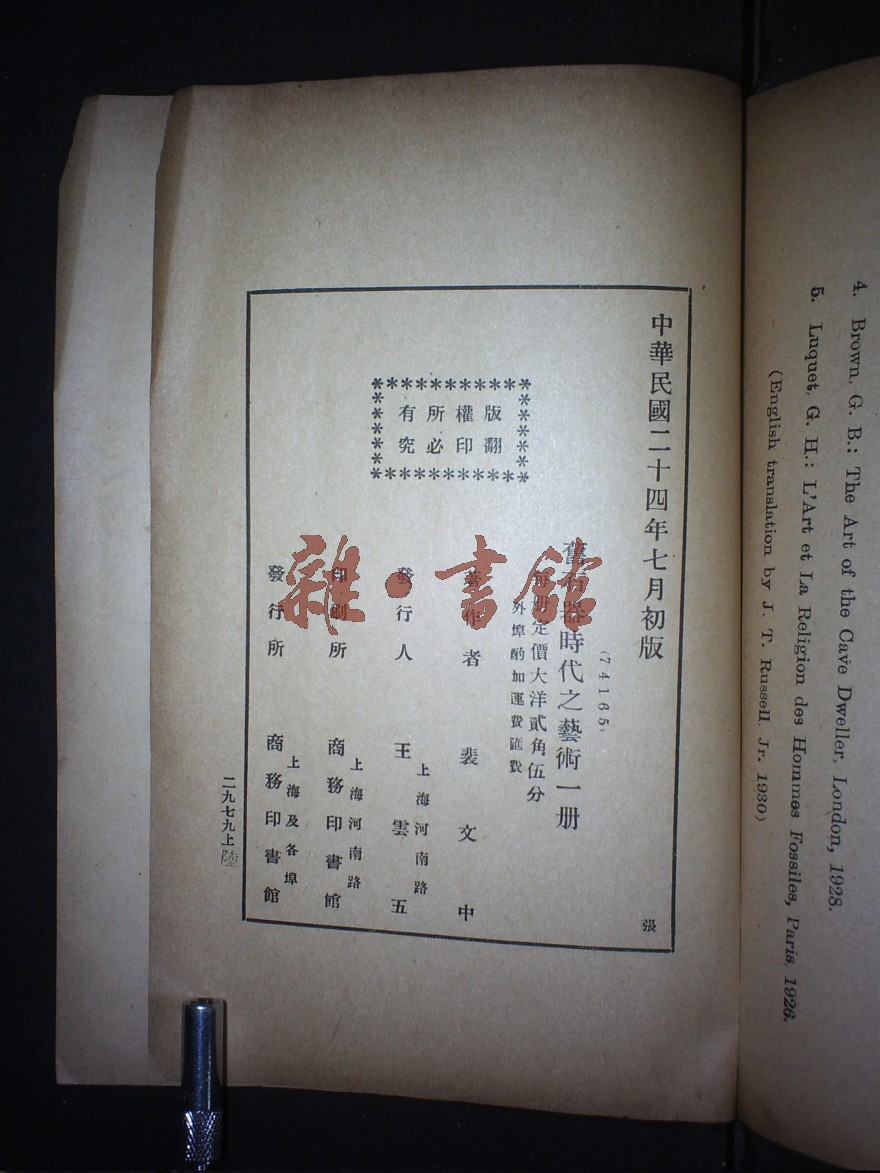 中華民國二十四年七月初版
張
(74165)
舊石器時代之藝術一册
每册定價大洋貳角伍分
外埠酌加運費匯費
版權所有
翻印必究
著作者 裴文中
發行人 上海河南路 王雲五
印刷所 上海河南路 商務印書館
發行所 上海及各埠 商務印書館
二九七九上
陸
雜·書館
4. Brown, G. B.: The Art of the Cave Dweller, London, 1928.
5. Luquet, G. H.: L'Art et La Religion des Hommes Fossiles, Paris, 1926.
(English translation by J. T. Russell, Jr. 1930)